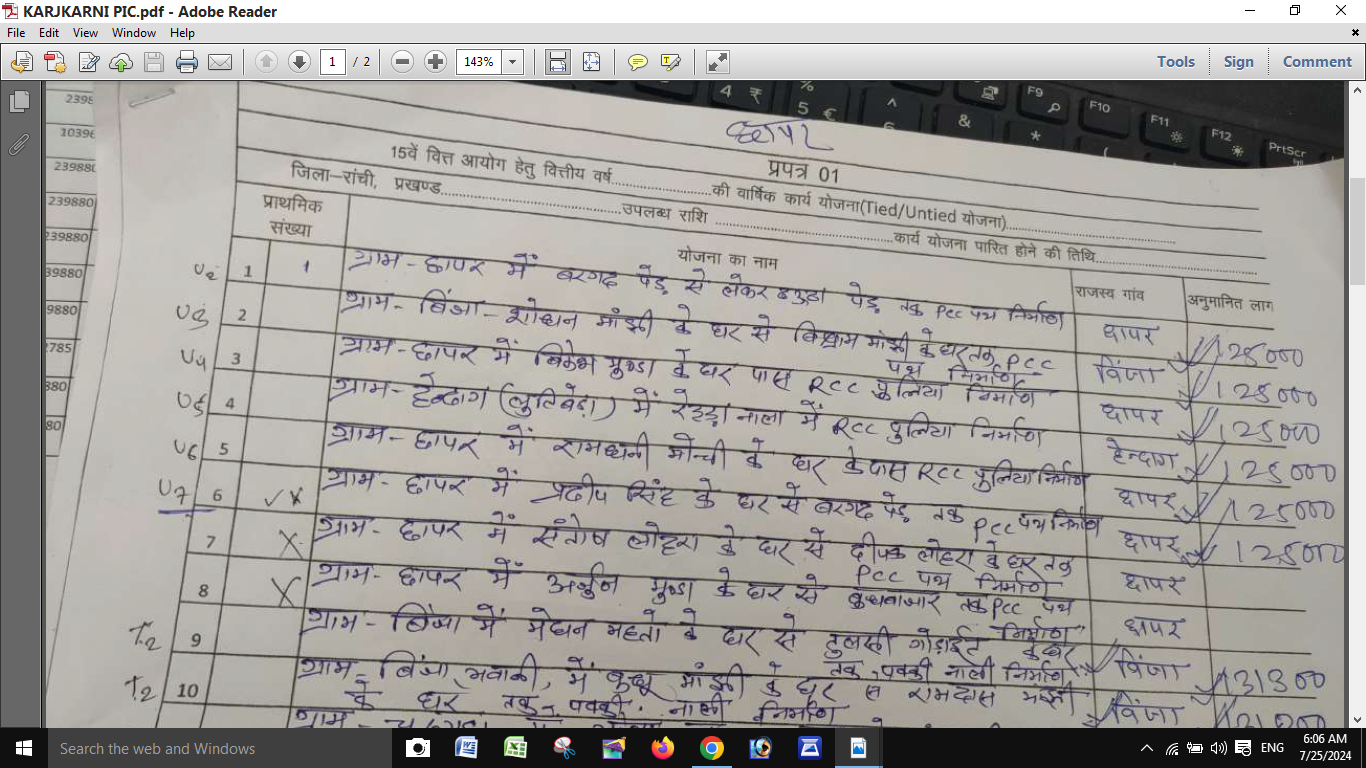 KARJKARNI PIC.pdf - Adobe Reader
File Edit View Window Help
1 / 2 143% Tools Sign Comment
2398
10396
239880
239880
239880
39880
9880
2785
880
80
4 ₹ % 5 € ^ 6 & * ( F9 F10 F11 F12 PrtScr
छापर
प्रपत्र 01
15वें वित्त आयोग हेतु वित्तीय वर्ष..........................की वार्षिक कार्य योजना(Tied/Untied योजना)..........................
जिला–रांची, प्रखण्ड..........................उपलब्ध राशि ..........................कार्य योजना पारित होने की तिथि..........................
प्राथमिक संख्या योजना का नाम राजस्व गांव अनुमानित लाग
U2 1 1 ग्राम - छापर में बरगद पेड़ से लेकर पेड़ तक PCC पथ निर्माण छापर 125000
U3 2 ग्राम - बिंजा - शोधन मांझी के घर से बिश्राम मांझी के घर तक PCC
पथ निर्माण बिंजा 125000
U4 3 ग्राम - छापर में मुण्डा के घर पास RCC पुलिया निर्माण छापर 125000
U5 4 ग्राम - हेन्दाग में नाला में RCC पुलिया निर्माण हेन्दाग 125000
U6 5 ग्राम - छापर में रामधनी के घर के पास RCC पुलिया निर्माण छापर 125000
U7 6 ग्राम - छापर में प्रदीप सिंह के घर से बरगद पेड़ तक PCC पथ निर्माण छापर 125000
7 X ग्राम - छापर में संतोष लोहरा के घर से दीपक लोहरा के घर तक
PCC पथ निर्माण छापर
8 X ग्राम - छापर में अर्जुन मुण्डा के घर से बुधबाजार तक PCC पथ
निर्माण छापर
T2 9 ग्राम - बिंजा में मेघन महतो के घर से तुलसी के घर
तक पक्की नाली निर्माण बिंजा 131300
T2 10 ग्राम - बिंजा में मांझी के घर से रामदास मांझी
के घर तक पक्की नाली निर्माण बिंजा
ग्राम -
Search the web and Windows
ENG 6:06 AM
7/25/2024